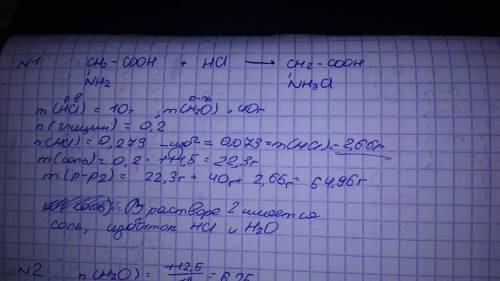 N1 CH2-COOH + HCl → CH2-COOH
NH2 NH3Cl
m(HCl) = 10г, m(H2O) = 40г
n(глицин) = 0,2
n(HCl) = 0,273 = 0,073 = m(HCl) = 2,66г
m(соль) = 0,2 · 111,5 = 22,3г
m(р-ра2) = 22,3г + 40г + 2,66г = 64,96г
В растворе 2 имеется
соль, избыток HCl и H2O
N2 n(H2O) = 112,5/18 = 6,25